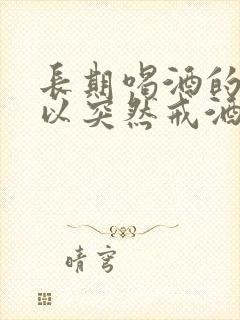 長期喝酒的
以突然戒酒
晴穹